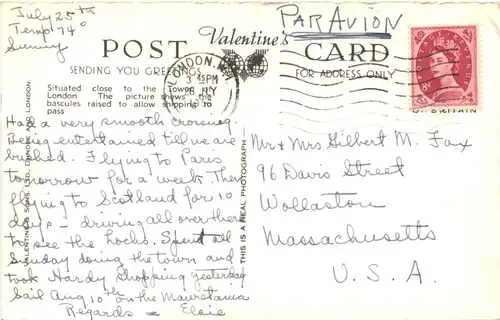 July 25th
Temp. 74°
Sunny
PAR AVION
POST Valentine's CARD
SENDING YOU GREETINGS
FOR ADDRESS ONLY
LONDON
Situated close to the Tower of
London. The picture shows the
bascules raised to allow shipping to
pass
Had a very smooth crossing.
Being entertained till we are
bushed. Flying to Paris
tomorrow for a week. Then
flying to Scotland for 10
days - driving all over there
to see the Lochs. Spent all
Sunday doing the town and
took Hardy shopping yesterday
Sail Aug 10th on the Mauretania
Regards = Elsie
VALENTINE & SONS, LTD., DUNDEE AND LONDON.
THIS IS A REAL PHOTOGRAPH
POSTAGE REVENUE
8d
Mr & Mrs Gilbert M. Fox
96 Davis Street
Wollaston
Massachusetts
U. S. A.